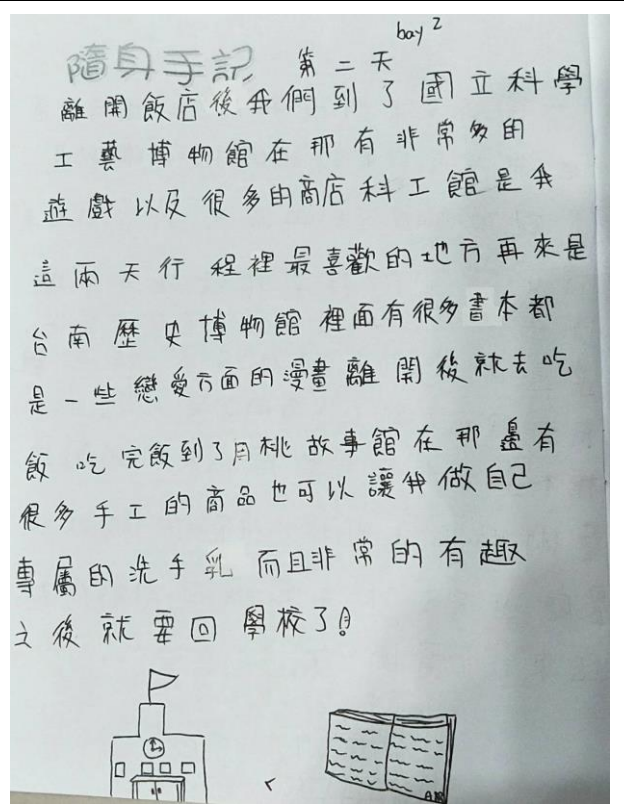 bay 2
隨身手記 第二天
離開飯店後我們到了國立科學
工藝博物館在那有非常多的
遊戲以及很多的商店科工館是我
這兩天行程裡最喜歡的地方再來是
台南歷史博物館裡面有很多書本都
是一些戀愛方面的漫畫離開後就去吃
飯吃完飯到了月桃故事館在那邊有
很多手工的商品也可以讓我做自己
專屬的洗手乳而且非常的有趣
之後就要回學校了!